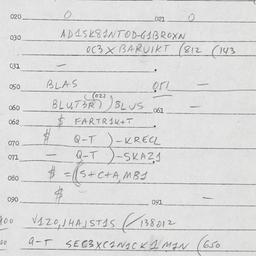 020 0 021 0
030 AD1SK81NTOD-G1BROXN
OC3XBARUIKT (812 (143
031 —
050 BLAS 051 —
060 BLUT3R) (022) BLUS 061 —
062 $ FARTR1K+T
070 $ Q-T )-KRECL
071 — Q-T )-SKAZ1
080 $ =(S+C+A, MB1
090 $ 091 —
V1ZO,1HA,1ST1S (/138012
Q-T SEC3XC1N1CK1M1N (650